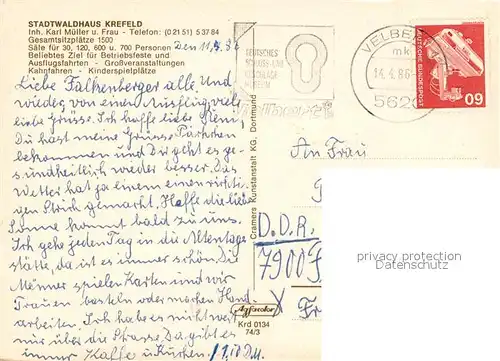 STADTWALDHAUS KREFELD
Inh. Karl Müller u. Frau - Telefon: (0 21 51) 5 37 84
Gesamtsitzplätze 1500
Säle für 30, 120, 600 u. 700 Personen
Beliebtes Ziel für Betriebsfeste und
Ausflugsfahrten - Großveranstaltungen
Kahnfahren - Kinderspielplätze
Den 11.4.86
Liebe Falkenberger alle Und
wieder von einen Ausflug viele
liebe Grüsse. Ich hoffe liebe
Du hast meine Grüsse Pärchen
bekommen und Dir geht es ge-
sundheitlich wieder besser. Das
Wetter hat ja einem einen richti-
gen Strich gemacht. Hoffe die liebe
Sonne kommt bald zu uns.
Ich gehe jeden Tag in die Altentages
stätte, da ist es immer schön. Die
Männer spielen Karten und wir
Frauen basteln oder machen Hand-
arbeiten. Ich habe es nicht weit
nur über die Strasse. Da gibt es
immer Kaffe u Kuchen
DEUTSCHES
SCHLOSS- UND
BESCHLÄGE
MUSEUM
VELBERT
mk
14.4.86
5620
DEUTSCHE BUNDESPOST
60
Cramers Kunstanstalt KG, Dortmund
An Frau
D.D.R.
7900
Agfacolor
Krd 0134
74/3
privacy protection
Datenschutz